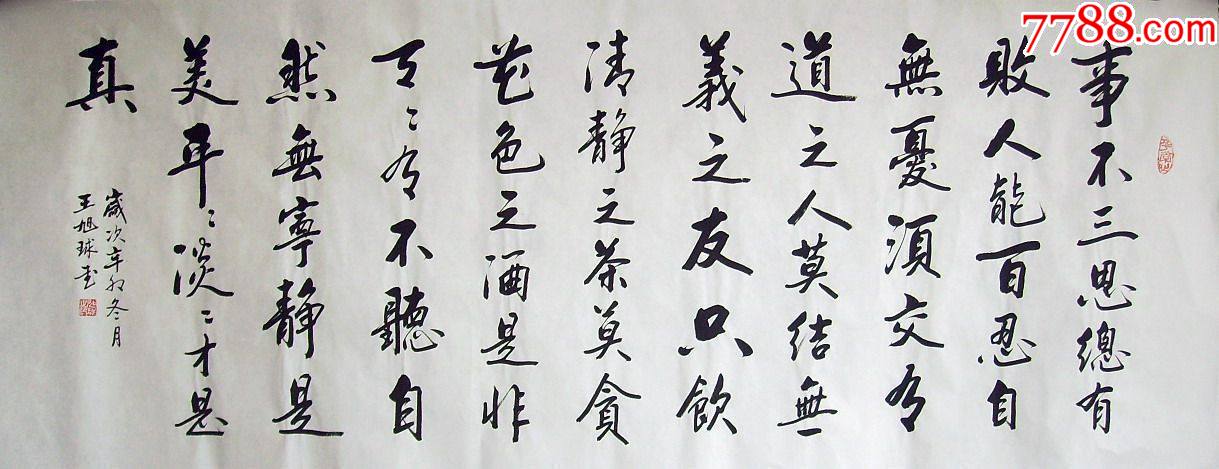 7788.com
事不三思總有
敗人能百忍自
無憂須交有
道之人莫結無
義之友只飲
清静之茶莫貪
花色之酒是非
天〻有不聽自
然無寧静是
美平〻淡〻才是
真
歲次辛卯冬月
王旭球書